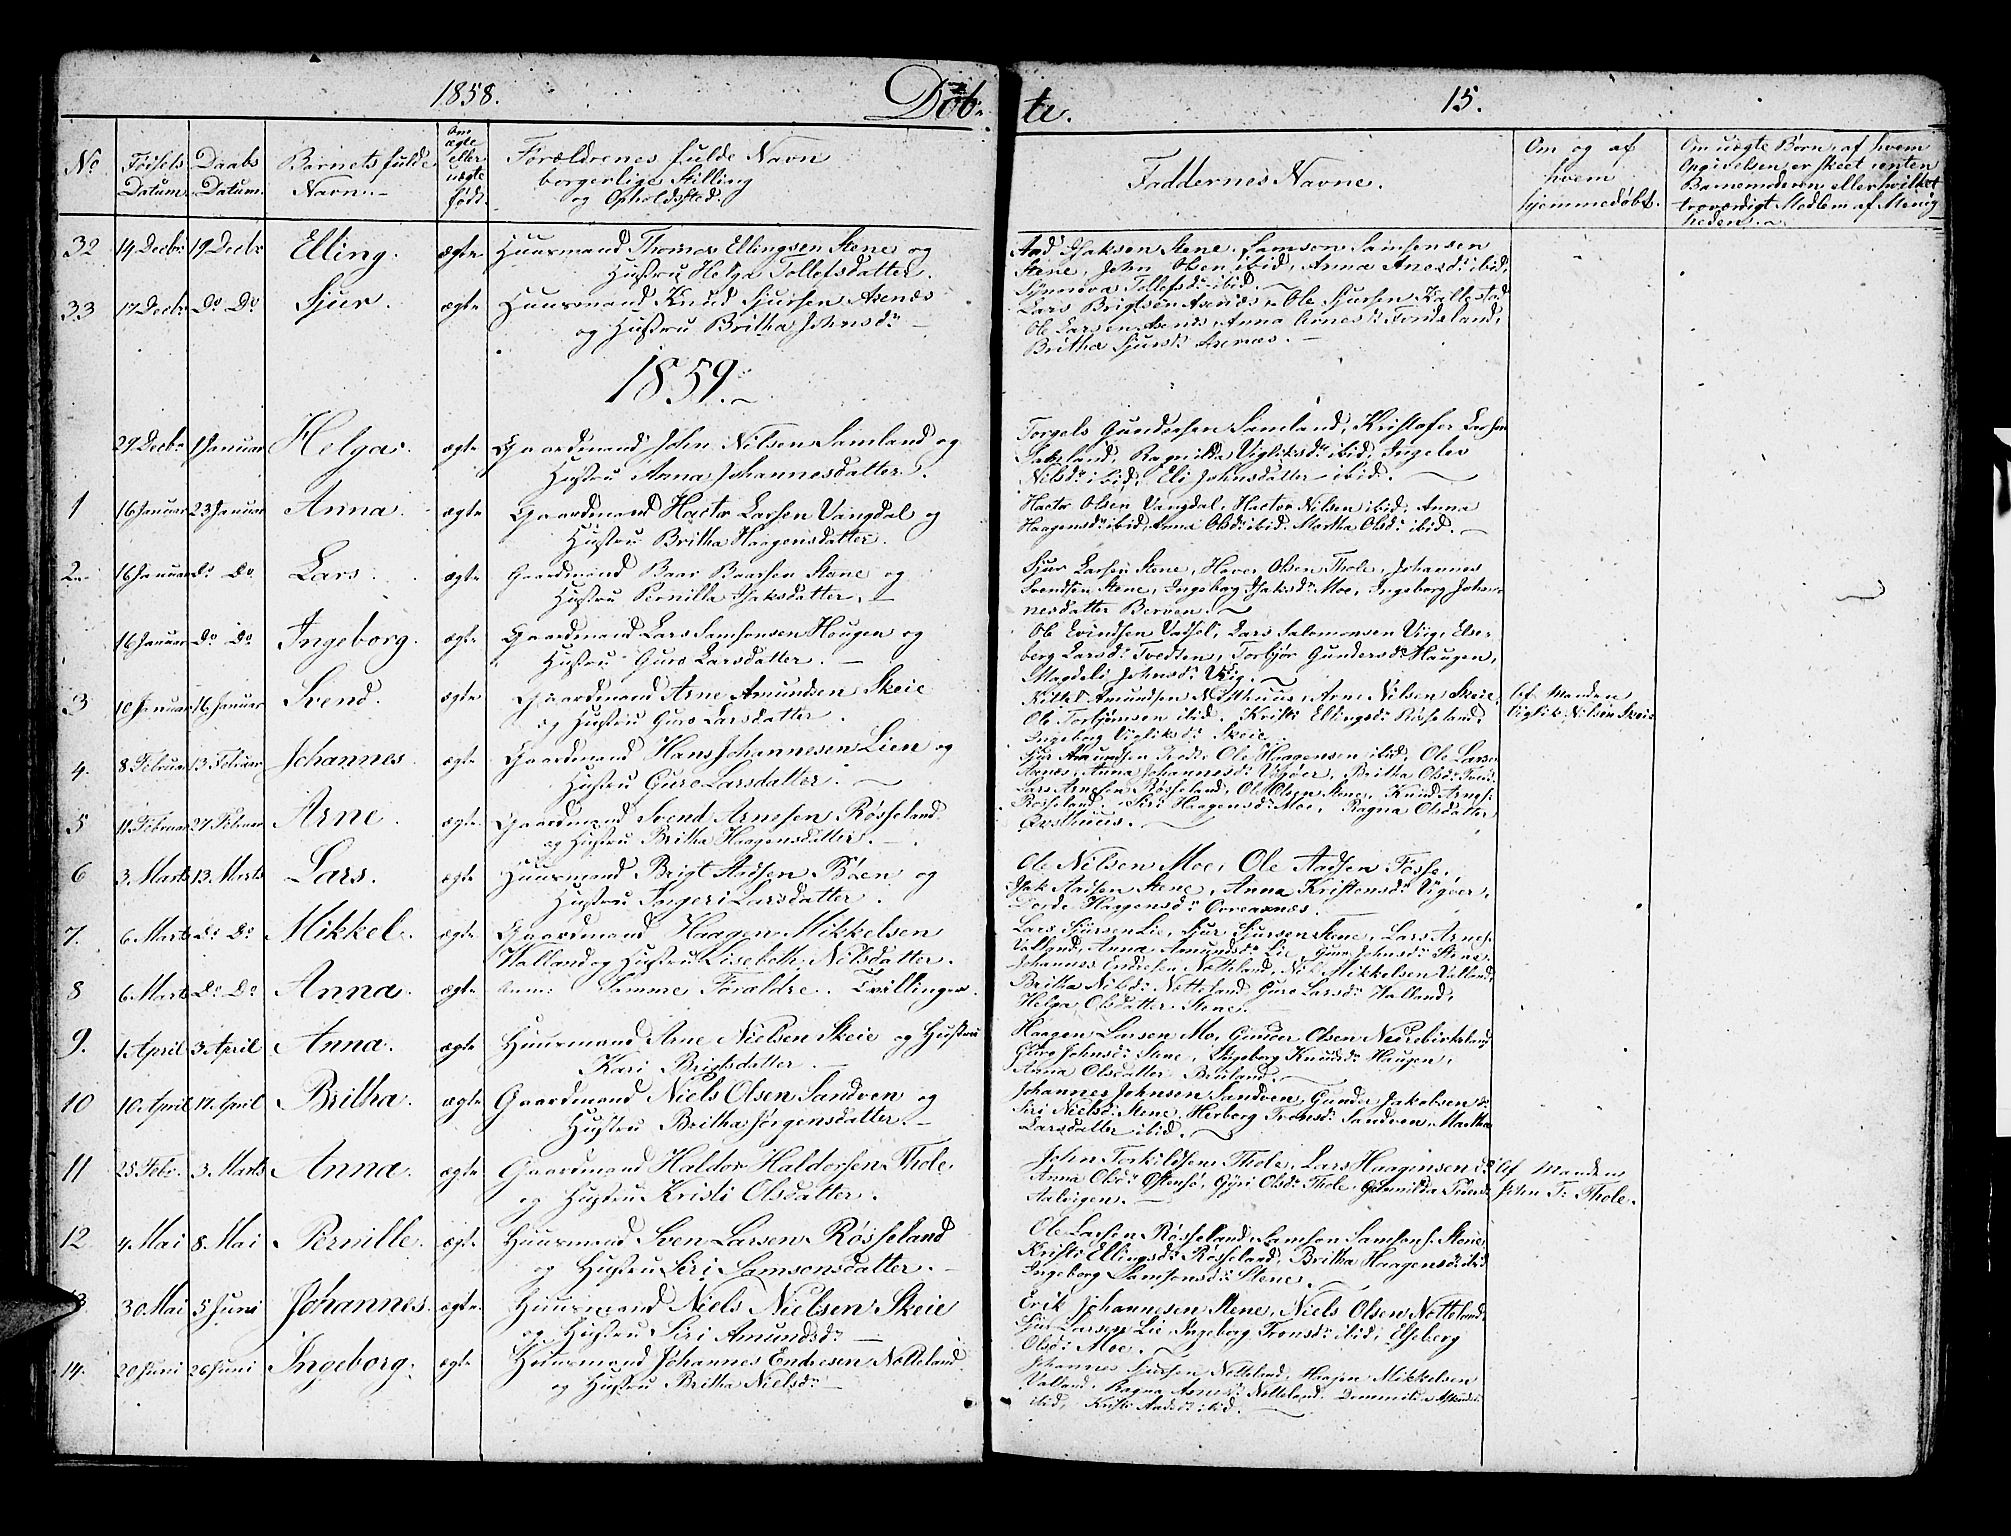 1858.
Døb-
te.
15.
No
Fødsels
Datum.
Daabs
Datum.
Barnets fulde
Navn.
Om
ægte
eller
uægte
født.
Forældrenes fulde Navn
borgerlige Stilling
og Opholdssted.
Faddernes Navne.
Om og af
hvem
hjemmedøbt.
Om uægte Børn, af hvem
Opgivelsen er skeet enten
Barnemoderen eller hvilket
troværdigt Medlem af Menig-
heden.
32 14 Decbr 19 Decbr Elling. ægte Huusmand Thomas Ellingsen Stene og
Hustru Helga Tollefsdatter.
Aad Isaksen Stene, Samson Samsonsen
Stene, John Olsen ibid, Anna Anesdr ibid,
Synnøva Tollefsdr ibid.
33 17 Decbr Do Do Sjur. ægte Huusmand Knud Sjursen Axenæs
og Hustru Britha Johnsdr
Lars Brigtsen Axenæs, Ole Sjursen Kallestad
Ole Larsen Axenæs, Anna Arnesdr Tondeland,
Britha Sjursdr Axenæs.
1859.
29 Decbr 1 Januar Helga. ægte Gaardmand John Nilsen Samland og
Hustru Anna Johannesdatter.
Torgels Gundersen Samland, Kristofer Larsen
Samland, Ragnilda Vigliksdr ibid, Ingelev
Nilsdr ibid, Eli Johnsdatter ibid.
1 16 Januar 23 Januar Anna. ægte Gaardmand Hactor Larsen Vangdal og
Hustru Britha Haagensdatter.
Hactor Olsen Vangdal, Hactor Nilsen ibid, Anna
Haagensdr ibid, Anna Olsdr ibid, Martha Olsdr ibid.
2 16 Januar Do Do Lars. ægte Gaardmand Baar Baarsen Stene og
Hustru Pernilla Isaksdatter.
Sjur Larsen Stene, Haver Olsen Thole, Johannes
Svendsen Stene, Ingeborg Isaksdr Moe, Ingeborg Johan-
nesdatter Berven.
16 Januar Do Do Ingeborg. ægte Gaardmand Lars Samsonsen Hougen og
Hustru Guro Larsdatter.
Ole Evindsen Vadsel, Lars Salomonsen Viig, Else-
berg Larsdr Tvedten, Torbjør Gundersdr Haugen,
Magdeli Johnsdr Viig.
3 10 Januar 16 Januar Svend. ægte Gaardmand Arne Amundsen Skeie
og Hustru Guro Larsdatter.
Kittel Amundsen Nesthuus, Arne Nilsen Skeie,
Ole Torbjørnsen ibid. Kristi Ellingsdr Røsseland,
Ingeborg Vigliksdr Skeie.
Af Manden
Viglik Nilsen Skeie
4. 8 Februar 13 Februar Johannes. ægte Gaardmand Hans Johannesen Lien og
Hustru Guro Larsdatter.
Sjur Amundsen Ole Haagensen ibid, Ole Larsen
Axnes, Anna Johannesdr Vigøer, Britha Olsdr
5 11 Februar 27 Februar Arne. ægte Gaardmand Svend Arnesen Røsseland
og Hustru Britha Haagensdatter.
Lars Arnesen Røsseland, Ole Olsen Stene, Knud Arnes.
Røsseland. Siri Haagensdr Moe, Ragna Olsdatter
Qvisthuus.
6 3 Marts 13 Marts Lars. ægte Huusmand Brigt Aadsen Bøen og
Hustru Ingeri Larsdatter.
Ole Nilsen Moe, Ole Aadsen Fosse,
Isak Aadsen Stene, Anna Kristensdr Vigøer,
Haagensdr
7. 6 Marts Do Do Mikkel. ægte Gaardmand Haagen Mikkelsen
Walland og Hustru Lisebeth Nilsdatter.
Lars Sjursen Lie, Sjur Sjursen Stene, Lars Arnes.
Valland, Anna Amundsdr Lie, Johnsdr Stene.
8 6 Marts Do Do Anna. ægte Samme Forældre. Tvillinger.
Johannes Endresen Notteland, Nils Mikkelsen Valland,
Britha Nilsdr Notteland, Guro Larsdr Walland,
Helga Olsdatter Stene.
9. 1 April 3 April Anna. ægte Huusmand Arne Nielsen Skeie og Hustru
Kari Brigtsdatter.
Haagen Larsen Mo, Gunder Olsen Nedrebirkeland
Guro Johnsdr Stene, Ingeborg Knudsdr Haugen,
Anna Olsdatter Bruland.
10 10 April 17 April Britha. ægte Gaardmand Niels Olsen Sandven og
Hustru Britha Jørgensdatter.
Johannes Johnsen Sandven, Gunder Jakobsen do
Siri Nielsdr Stene, Herborg Tronsdr Sandven, Martha
Larsdatter ibid.
11 25 Febr. 3 Marts Anna. ægte Gaardmand Haldor Haldorsen Thole,
og Hustru Kristi Olsdatter.
John Torkildsen Thole, Lars Haagensen do
Anna Olsdr Østensø, Gyri Olsdr Thole, Gunnilda
Aalvigen.
Af Manden
John T: Thole.
12 4 Mai 8 Mai Pernille. ægte Huusmand Sven Larsen Røsseland
og Hustru Siri Samsonsdatter.
Ole Larsen Røsseland, Samson Samsons. Stene,
Kristi Ellingsdr Røsseland, Britha Haagensdr ibid
Ingeborg Samsonsdr Stene.
13. 30 Mai 5 Juni Johannes. ægte Huusmand Niels Nielsen Skeie
og Hustru Siri Amundsdr
Erik Johannesen Stene, Niels Olsen Notteland,
Sjur Larsen Lie, Ingeborg Tronsdr ibid, Elseberg
Olsdr Moe.
14. 20 Juni 26 Juni Ingeborg. ægte Huusmand Johannes Endresen Notteland
og Hustru Britha Nielsdr
Johannes Sjursen Notteland, Haagen Mikkelsen
Valland, Ragna Arnesdr Notteland,
ibid, Kristi Aadsdr ibid.